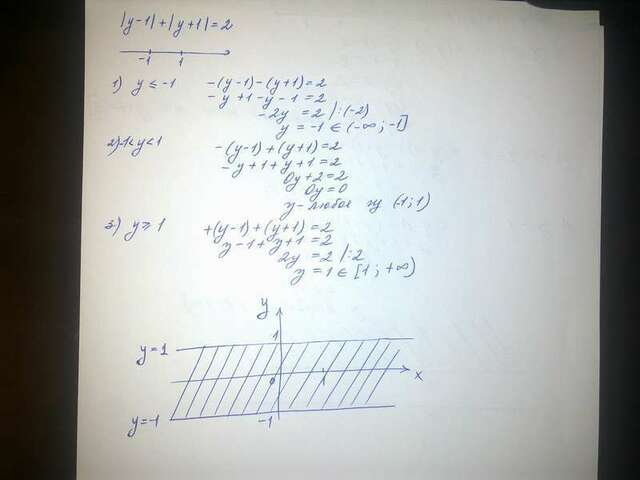 |y-1|+|y+1|=2
-1 1
1) y ≤ -1 -(y-1)-(y+1)=2
-y+1-y-1=2
-2y=2 |:(-2)
y=-1 ∈ (-∞;-1]
2) -1<y<1 -(y-1)+(y+1)=2
-y+1+y+1=2
0y+2=2
0y=0
y-любое из (-1;1)
3) y ≥ 1 +(y-1)+(y+1)=2
y-1+y+1=2
2y=2 |:2
y=1 ∈ [1;+∞)
y
1
y=1
0 1 x
y=-1 -1